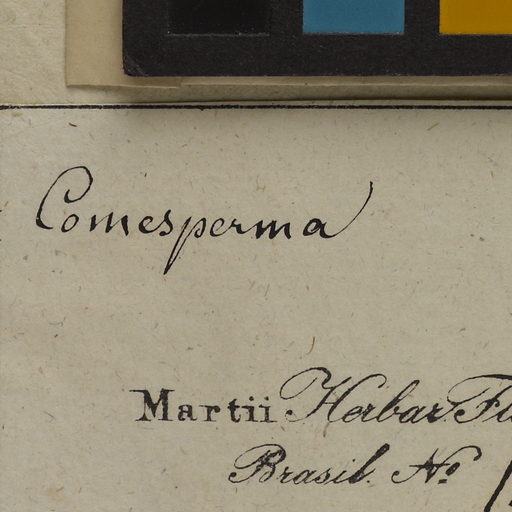 Comesperma
Martii Herbar.
Brasil. No.